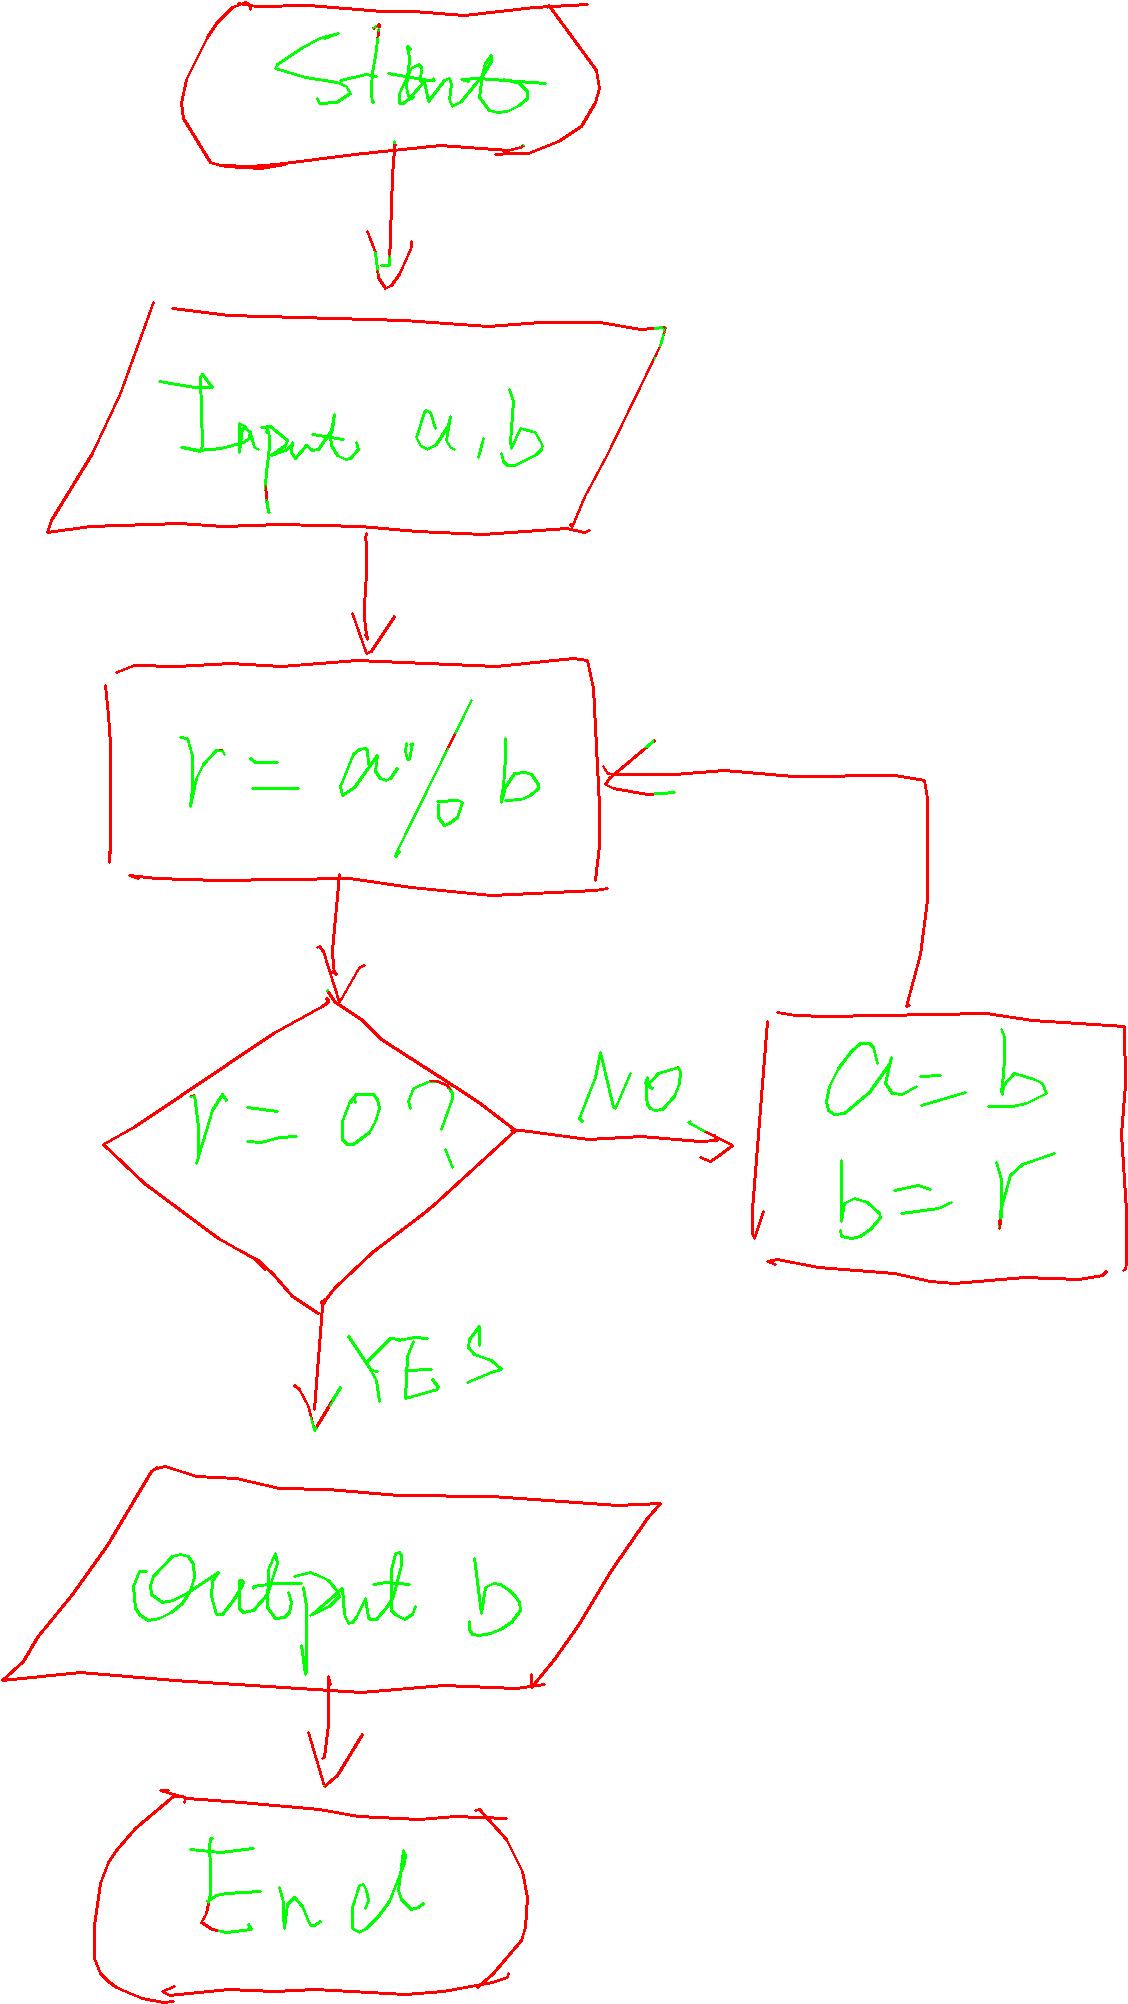 Start
Input a, b
r = a % b
r = 0 ?
NO
a = b
b = r
YES
Output b
End